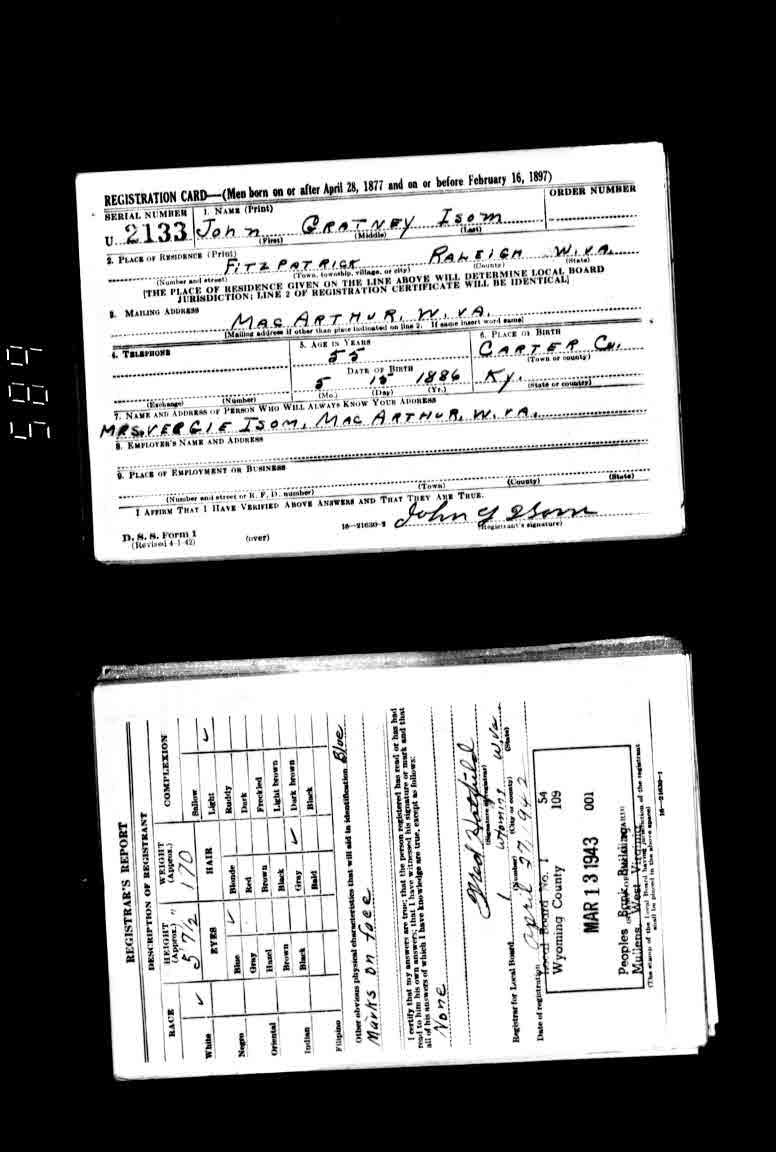 589
REGISTRATION CARD—(Men born on or after April 28, 1877 and on or before February 16, 1897)
SERIAL NUMBER 1. NAME (Print) ORDER NUMBER
U 2133 John GRATNEY Isom
(First) (Middle) (Last)
2. PLACE OF RESIDENCE (Print)
FITZPATRICK RALEIGH W.VA.
(Number and street) (Town, township, village, or city) (County) (State)
[THE PLACE OF RESIDENCE GIVEN ON THE LINE ABOVE WILL DETERMINE LOCAL BOARD
JURISDICTION; LINE 2 OF REGISTRATION CERTIFICATE WILL BE IDENTICAL]
3. MAILING ADDRESS
MAC ARTHUR, W. VA.
[Mailing address if other than place indicated on line 2. If same insert word same]
4. TELEPHONE 5. AGE IN YEARS 6. PLACE OF BIRTH
55 CARTER Cu.
DATE OF BIRTH (Town or county)
5 15 1886 Ky.
(Exchange) (Number) (Mo.) (Day) (Yr.) (State or country)
7. NAME AND ADDRESS OF PERSON WHO WILL ALWAYS KNOW YOUR ADDRESS
MRS. VERGIE ISOM, MAC ARTHUR, W. VA.
8. EMPLOYER'S NAME AND ADDRESS
9. PLACE OF EMPLOYMENT OR BUSINESS
(Number and street or R. F. D. number) (Town) (County) (State)
I AFFIRM THAT I HAVE VERIFIED ABOVE ANSWERS AND THAT THEY ARE TRUE.
John G Isom
D. S. S. Form 1 16—21630-2 (Registrant's signature)
(Revised 4-1-42) (over)
REGISTRAR'S REPORT
DESCRIPTION OF REGISTRANT
RACE HEIGHT (Approx.) WEIGHT (Approx.) COMPLEXION
5 7½ " 170 Sallow
White ✓ EYES HAIR Light ✓
Blue ✓ Blonde Ruddy
Negro Gray Red Dark
Oriental Hazel Brown Freckled
Brown Black Light brown
Indian Black Gray ✓ Dark brown
Bald Black
Filipino
Other obvious physical characteristics that will aid in identification Blue
Marks on face
I certify that my answers are true; that the person registered has read or has had
read to him his own answers; that I have witnessed his signature or mark and that
all of his answers of which I have knowledge are true, except as follows:
None
Fred Hatfield
(Signature of registrar)
Registrar for Local Board 1 Wyoming W.Va
(Number) (City or county) (State)
Date of registration April 27, 1942
Local Board No. 1 54
Wyoming County 109
MAR 13 1943 001
Peoples Bank Building
Mullens, West Virginia
(The stamp of the Local Board having jurisdiction of the registrant
shall be placed in the above space)
16—21630-1